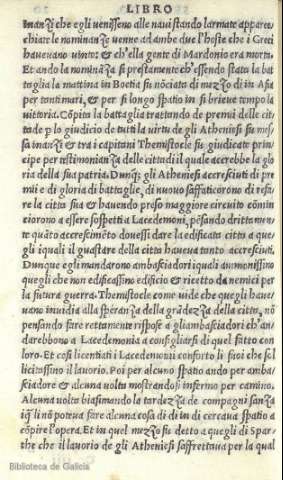 LIBRO
inanzi che egli venissero alle navi stando larmate apparec
chiate le nominanze venne ad ambe due l'hoste che i Greci
havevano vinto: & ch'ella gente di Mardonio era morta
Et ando la nominãza si prestamente ch'essendo stata la bat
taglia la mattina in Boetia fu nõciata di mezzo dì in Asia
per tonti mari, & per si longo spatio in si brieve tempo la
vittoria. Cõpita la battaglia trattando de premii delle cit
tade p lo giudicio de tutti la virtu de gli Atheniesi fu mes
sa inanzi & tra i capitani Themistocle fu giudicato prin
cipe per testimonianza delle cittadi il quale accrebbe la glo
ria della sua patria. Dunq; gli Atheniesi accresciuti di pre
mii e di gloria di battaglie, di nuovo saffaticorono di refa
re la citta sua & havendo preso maggiore circuito comin
ciorono a essere sospetti a Lacedemoni, pẽsando drittamen
te quãto accrescimẽto dovessi dare la edificata citta a que
gli iquali il guastare della citta haveva tonto accresciuti.
Dunque egli mandarono ambasciadori iquali amonissino
quegli che non edificassino edificio & ricetto da nemici per
la futura guerra. Themistocle come vide che quegli have
vano invidia alla speranza della grãdezza della citta, nõ
pensando fare rettamente rispose a gliambasciadori ch'an
darebbono a Lacedemonia a consigliarsi di quel fatto con
loro. Et cosi licentiati i Lacedemoni conforto li suoi che sol
licitissino il lavorio. Poi per alcuno spatio ando per amba
sciadore & alcuna volta mostrandosi infermo per camino.
Alcuna volta biasimando la tardezza de compagni sanza
iq̃li nõ poteva fare alcuna cosa di dì in dì cercava spatio a
cõpire l'opera. Et in quel mezzo fu detto a quegli di Spar-
the che il lavorio de gli Atheniesi saffrettava per la qual
Biblioteca de Galicia